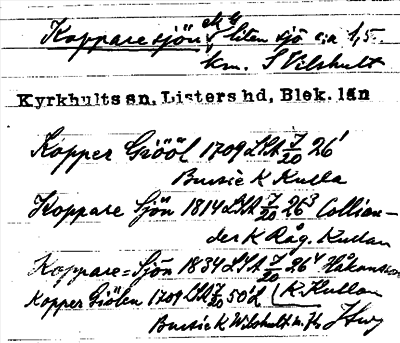 Kopparesjön M G liten sjö c:a 1,5
km. S Vilshult
Kyrkhults sn. Listers hd, Blek. län
Kopper Giööl 1709 LSA J/20 26¹
Bursie K Kulla
Koppare Sjön 1814 LSA J/20 26³ Collian-
der K Råg. Kullan
Koppare=Sjön 1834 LSA J/20 26⁴ Håkansson
Kopper Giölen 1709 LSA J/20 50:2 K. Kullan
Bursie K Wilshult m. fl.